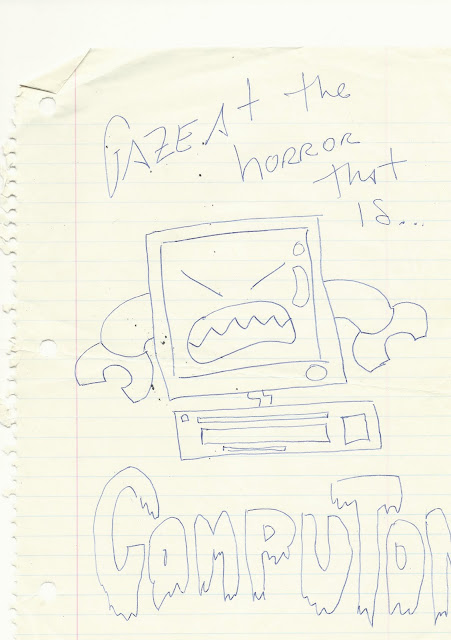 GAZE At the
HORROR
that
IS...
COMPUTON